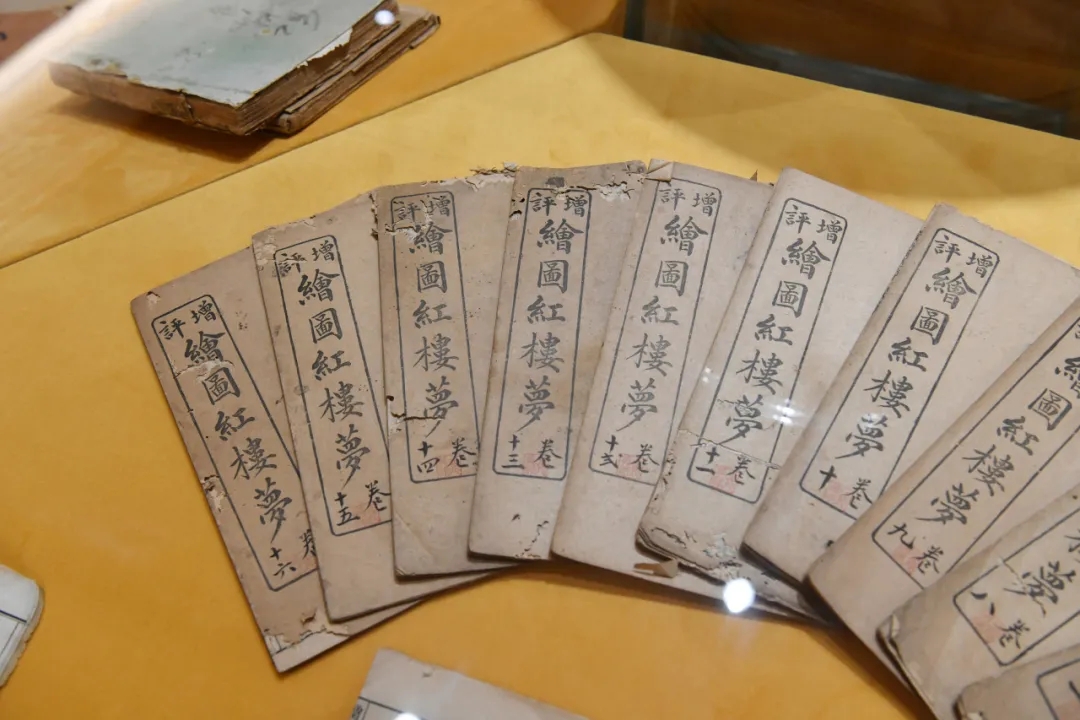 增評繪圖紅樓夢卷十六
增評繪圖紅樓夢卷十五
增評繪圖紅樓夢卷十四
增評繪圖紅樓夢卷十三
增評繪圖紅樓夢卷十二
增評繪圖紅樓夢卷十一
增評繪圖紅樓夢卷十
繪圖紅樓夢卷九
夢卷八